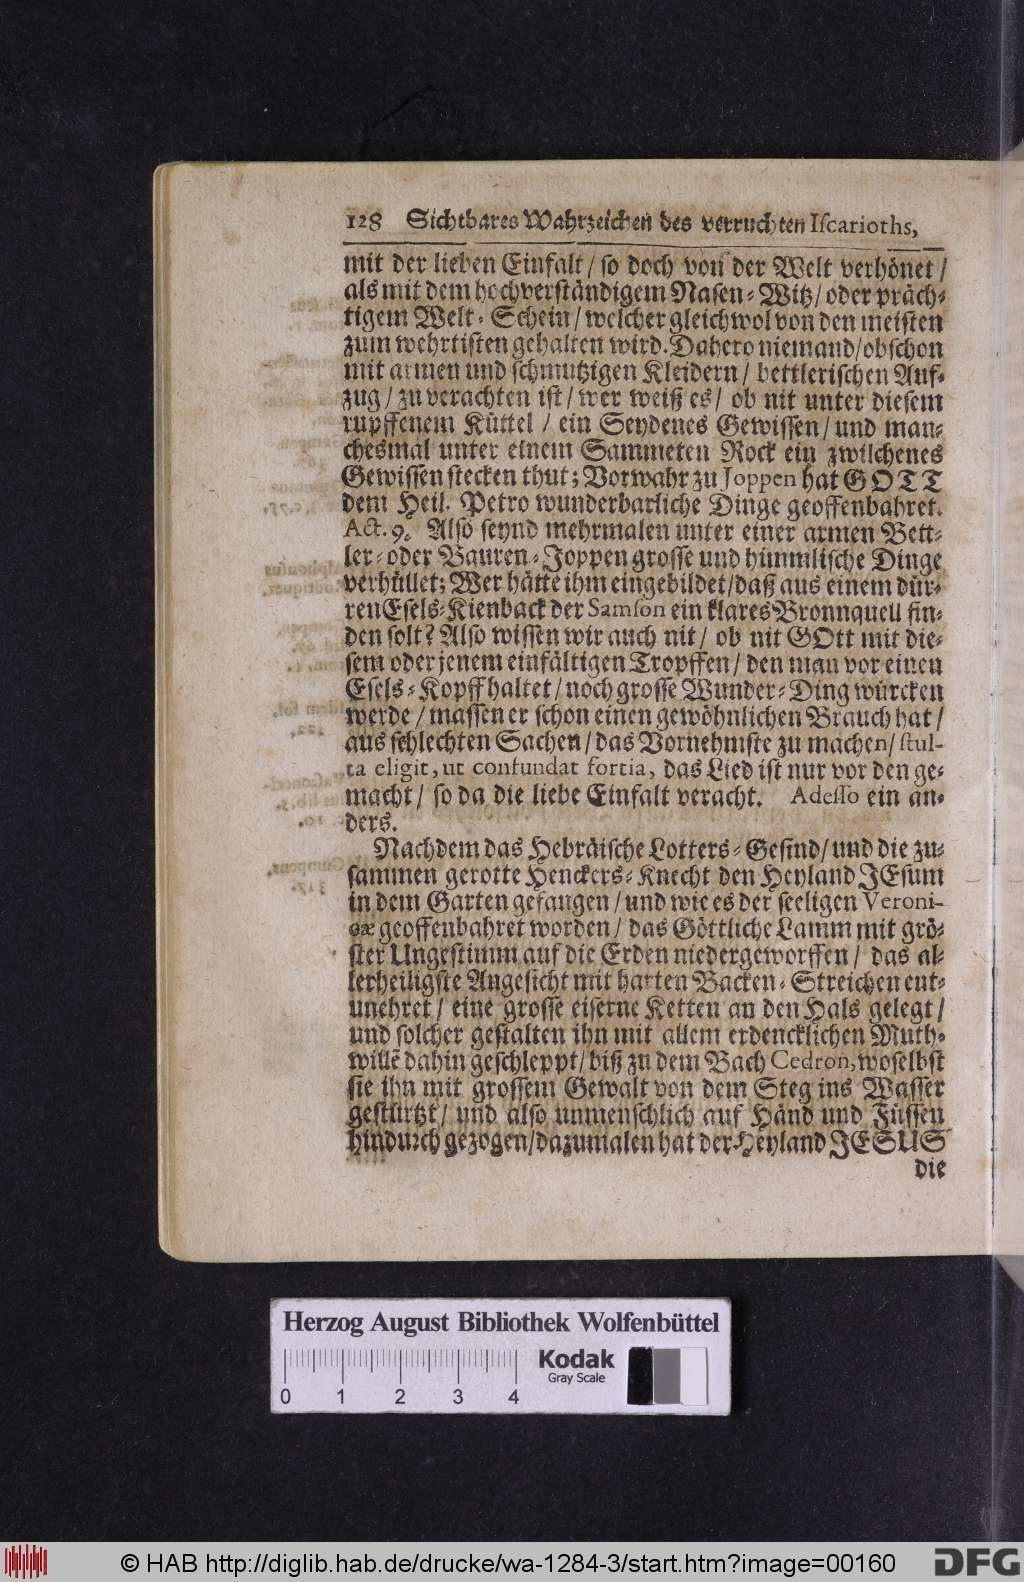 128 Sichtbares Wahrzeichen des verruchten Iſcarioths,
mit der lieben Einfalt / ſo doch von der Welt verhönet /
als mit dem hochverſtändigem Naſen-Witz / oder präch-
tigem Welt-Schein / welcher gleichwol von den meiſten
zum wehrtiſten gehalten wird. Dahero niemand / obſchon
mit armen und ſchmutzigen Kleidern / bettleriſchen Auf-
zug / zu verachten iſt / wer weiß es / ob nit unter dieſem
rupffenem Küttel / ein Seydenes Gewiſſen / und man-
chesmal unter einem Sammeten Rock ein zwilchenes
Gewiſſen ſtecken thut; Vorwahr zu Joppen hat GOTT
dem Heil. Petro wunderbarliche Dinge geoffenbahret.
Act. 9. Alſo ſeynd mehrmalen unter einer armen Bett-
ler- oder Bauren-Joppen groſſe und himmliſche Dinge
verhüllet; Wer hätte ihm eingebildet / daß aus einem dür-
ren Eſels-Kienback der Samſon ein klares Bronnquell fin-
den ſolt? Alſo wiſſen wir auch nit / ob nit GOtt mit die-
ſem oder jenem einfältigen Tropffen / den man vor einen
Eſels-Kopff haltet / noch groſſe Wunder-Ding würcken
werde / maſſen er ſchon einen gewöhnlichen Brauch hat /
aus ſchlechten Sachen / das Vornehmſte zu machen / ſtul-
ta eligit, ut confundat fortia, das Lied iſt nur vor den ge-
macht / ſo da die liebe Einfalt veracht. Adeſſo ein an-
ders.
Nachdem das Hebräiſche Lotters-Geſind / und die zu-
ſammen gerotte Henckers-Knecht den Heyland JEſum
in dem Garten gefangen / und wie es der ſeeligen Veroni-
cæ geoffenbahret worden / das Göttliche Lamm mit grö-
ſter Ungeſtimm auf die Erden niedergeworffen / das al-
lerheiligſte Angeſicht mit harten Backen-Streichen ent-
unehret / eine groſſe eiſerne Ketten an den Hals gelegt /
und ſolcher geſtalten ihn mit allem erdencklichen Muth-
willẽ dahin geſchleppt / biß zu dem Bach Cedron, woſelbſt
ſie ihn mit groſſem Gewalt von dem Steg ins Waſſer
geſtürtzt / und alſo unmenſchlich auf Händ und Füſſen
hindurch gezogen / dazumalen hat der Heyland JESUS
die
Herzog August Bibliothek Wolfenbüttel
0 1 2 3 4
Kodak
Gray Scale
© HAB http://diglib.hab.de/drucke/wa-1284-3/start.htm?image=00160
DFG